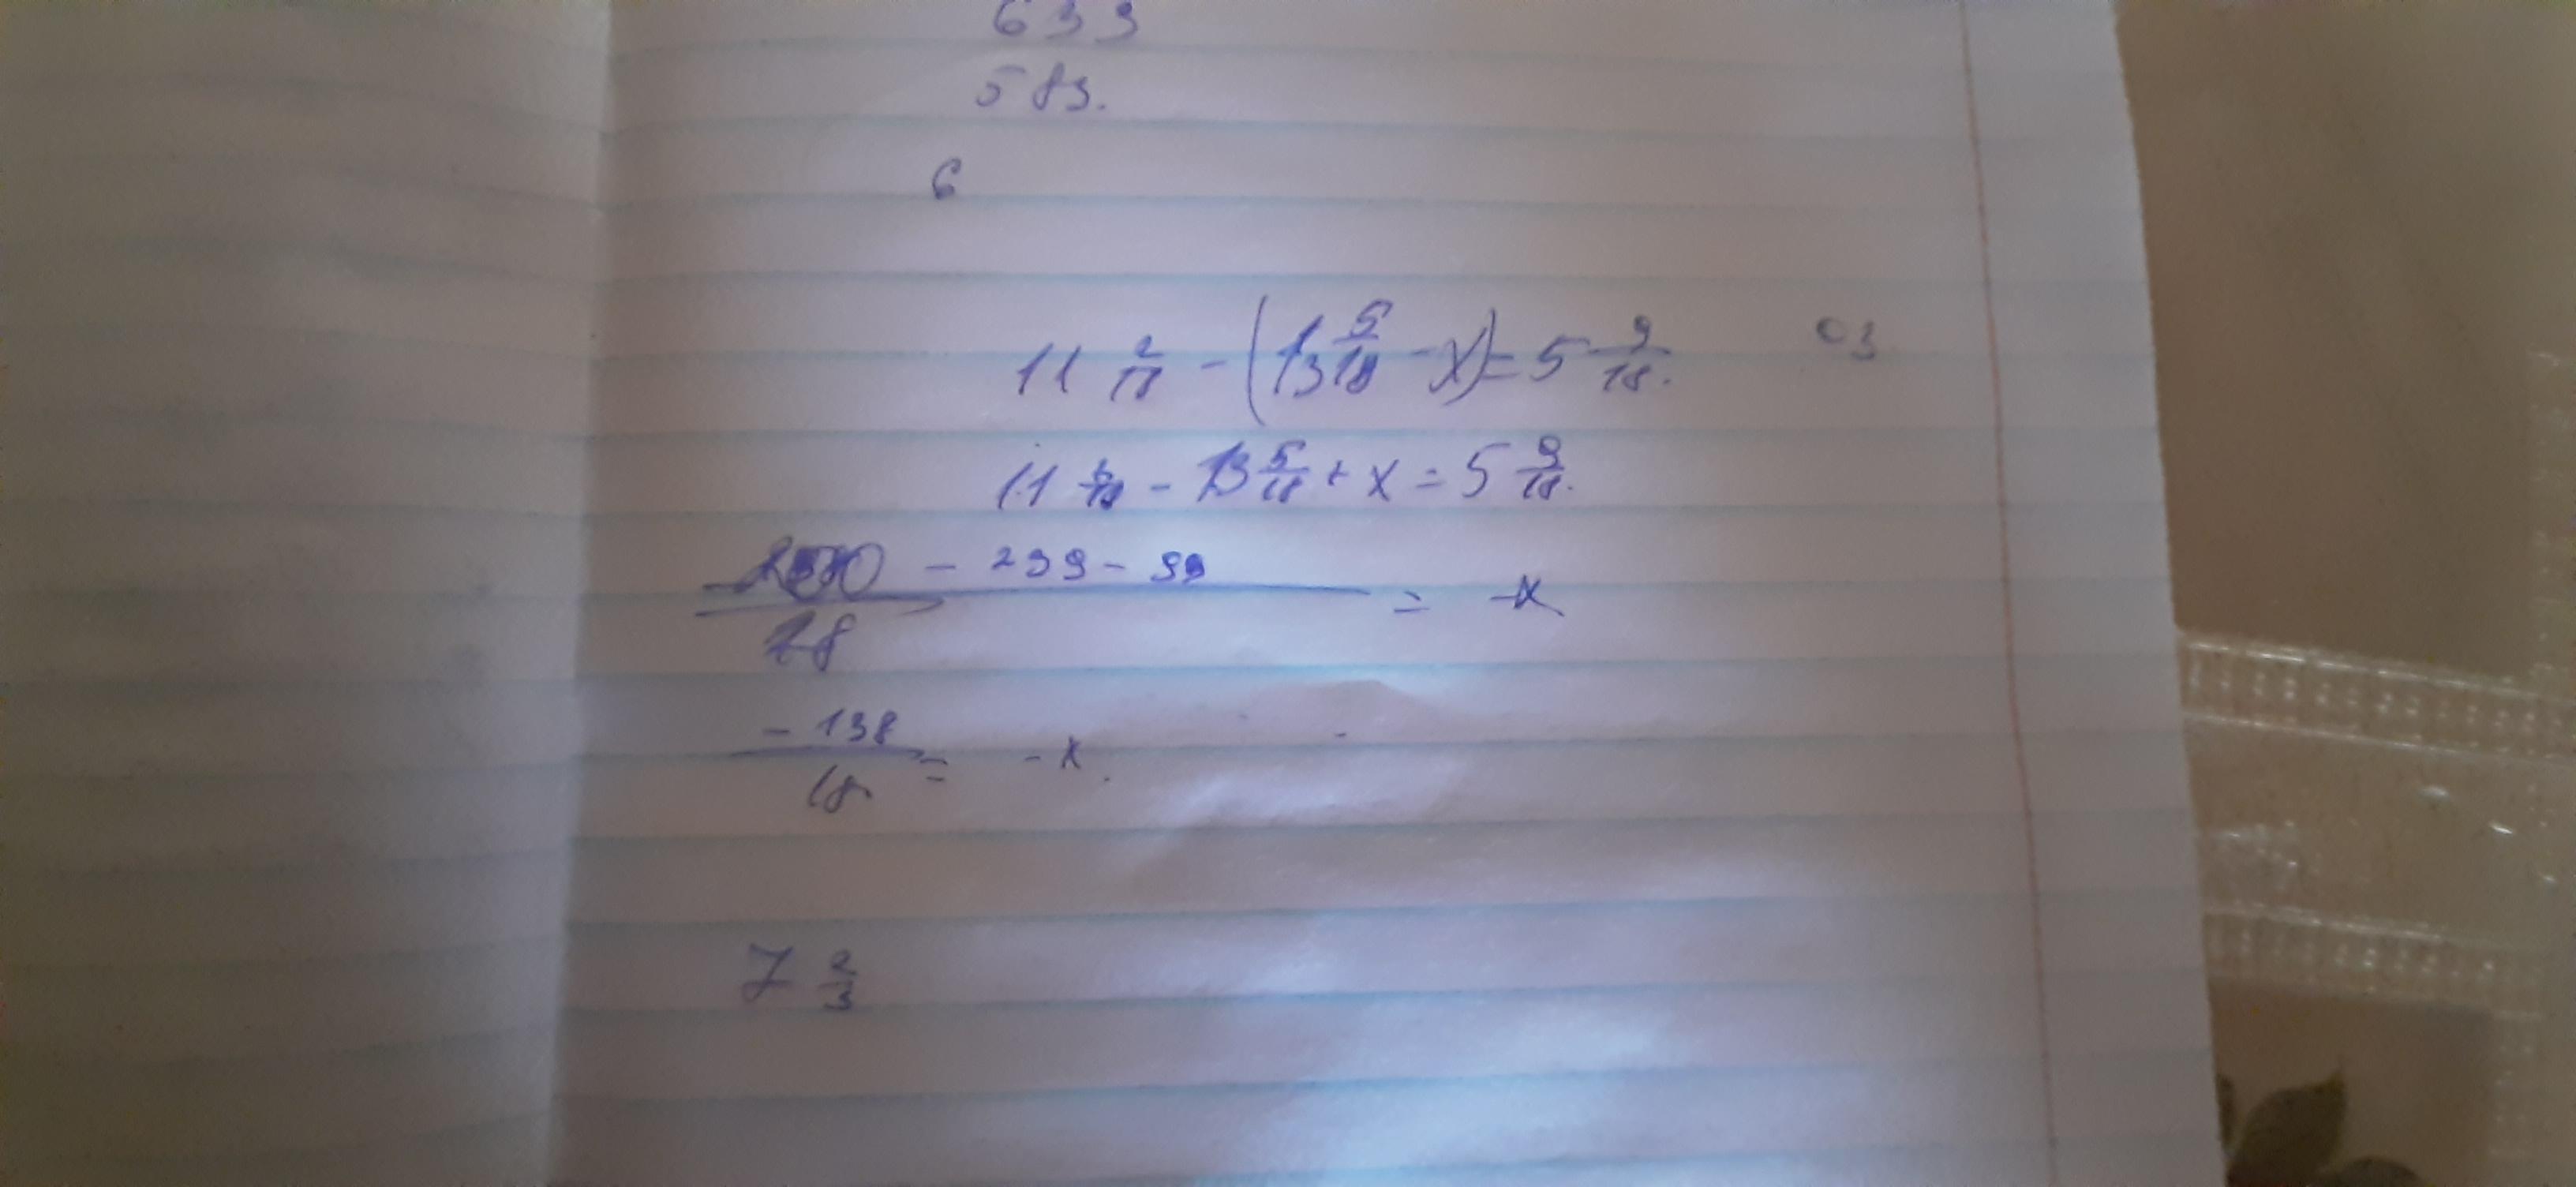 633
583.
6
11 2/18 - (13 5/18 - x) = 5 9/18. 03
11 - 13 5/18 + x = 5 9/18.
- 239 - 99 / 18 = -x
- 138 / 18 = -x.
7 2/3